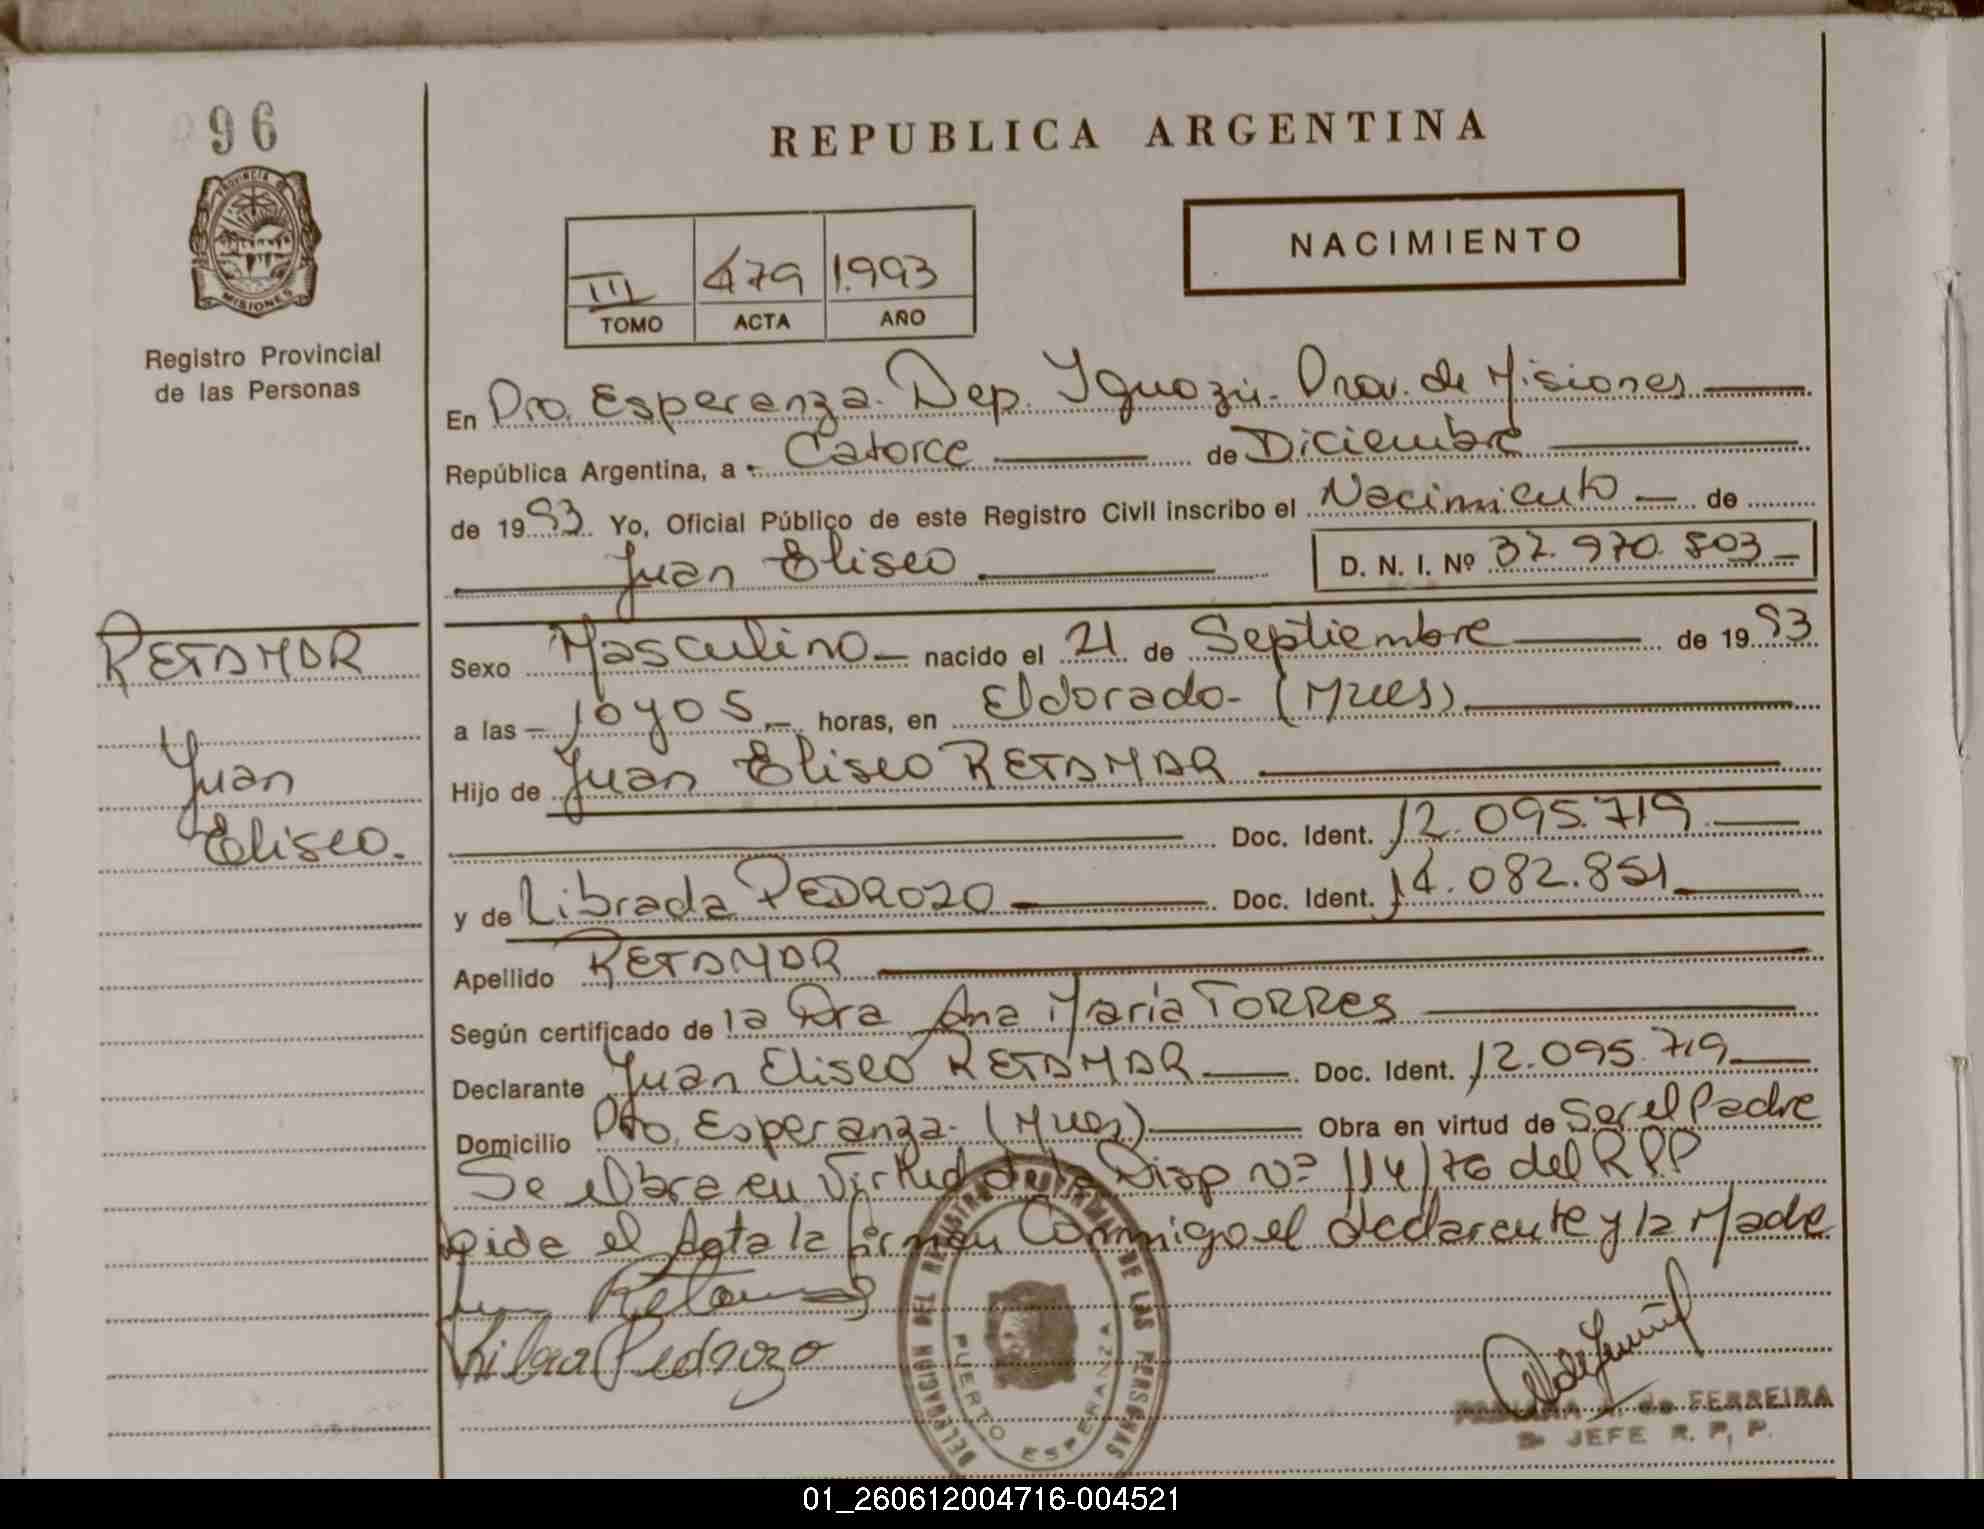 96
PROVINCIA DE
MISIONES
Registro Provincial
de las Personas
REPUBLICA ARGENTINA
NACIMIENTO
III 479 1.993
TOMO ACTA AÑO
En Pto. Esperanza. Dep. Iguazú. Prov. de Misiones
República Argentina, a Catorce de Diciembre
de 1993 Yo, Oficial Público de este Registro Civil inscribo el Nacimiento de
Juan Eliseo D. N. I. Nº 37.970.803
RETAMAR
Juan
Eliseo.
Sexo Masculino nacido el 21 de Septiembre de 1993
a las 10 y 05 horas, en Eldorado - (Mnes)
Hijo de Juan Eliseo RETAMAR
Doc. Ident. 12.095.719
y de Librada PEDROZO Doc. Ident. 14.082.851
Apellido RETAMAR
Según certificado de la Dra Ana María TORRES
Declarante Juan Eliseo RETAMAR Doc. Ident. 12.095.719
Domicilio Pto. Esperanza - (Mnes) Obra en virtud de Ser el Padre
Se Obra en Virtud de la Disp Nº 114/76 del RPP
Leida el Acta la firman Conmigo el declarante y la Madre
Juan Retamar
Pedrozo
DELEGACION DEL REGISTRO PROVINCIAL DE LAS PERSONAS
PUERTO ESPERANZA
de FERREIRA
JEFE R. P. P.
01_260612004716-004521